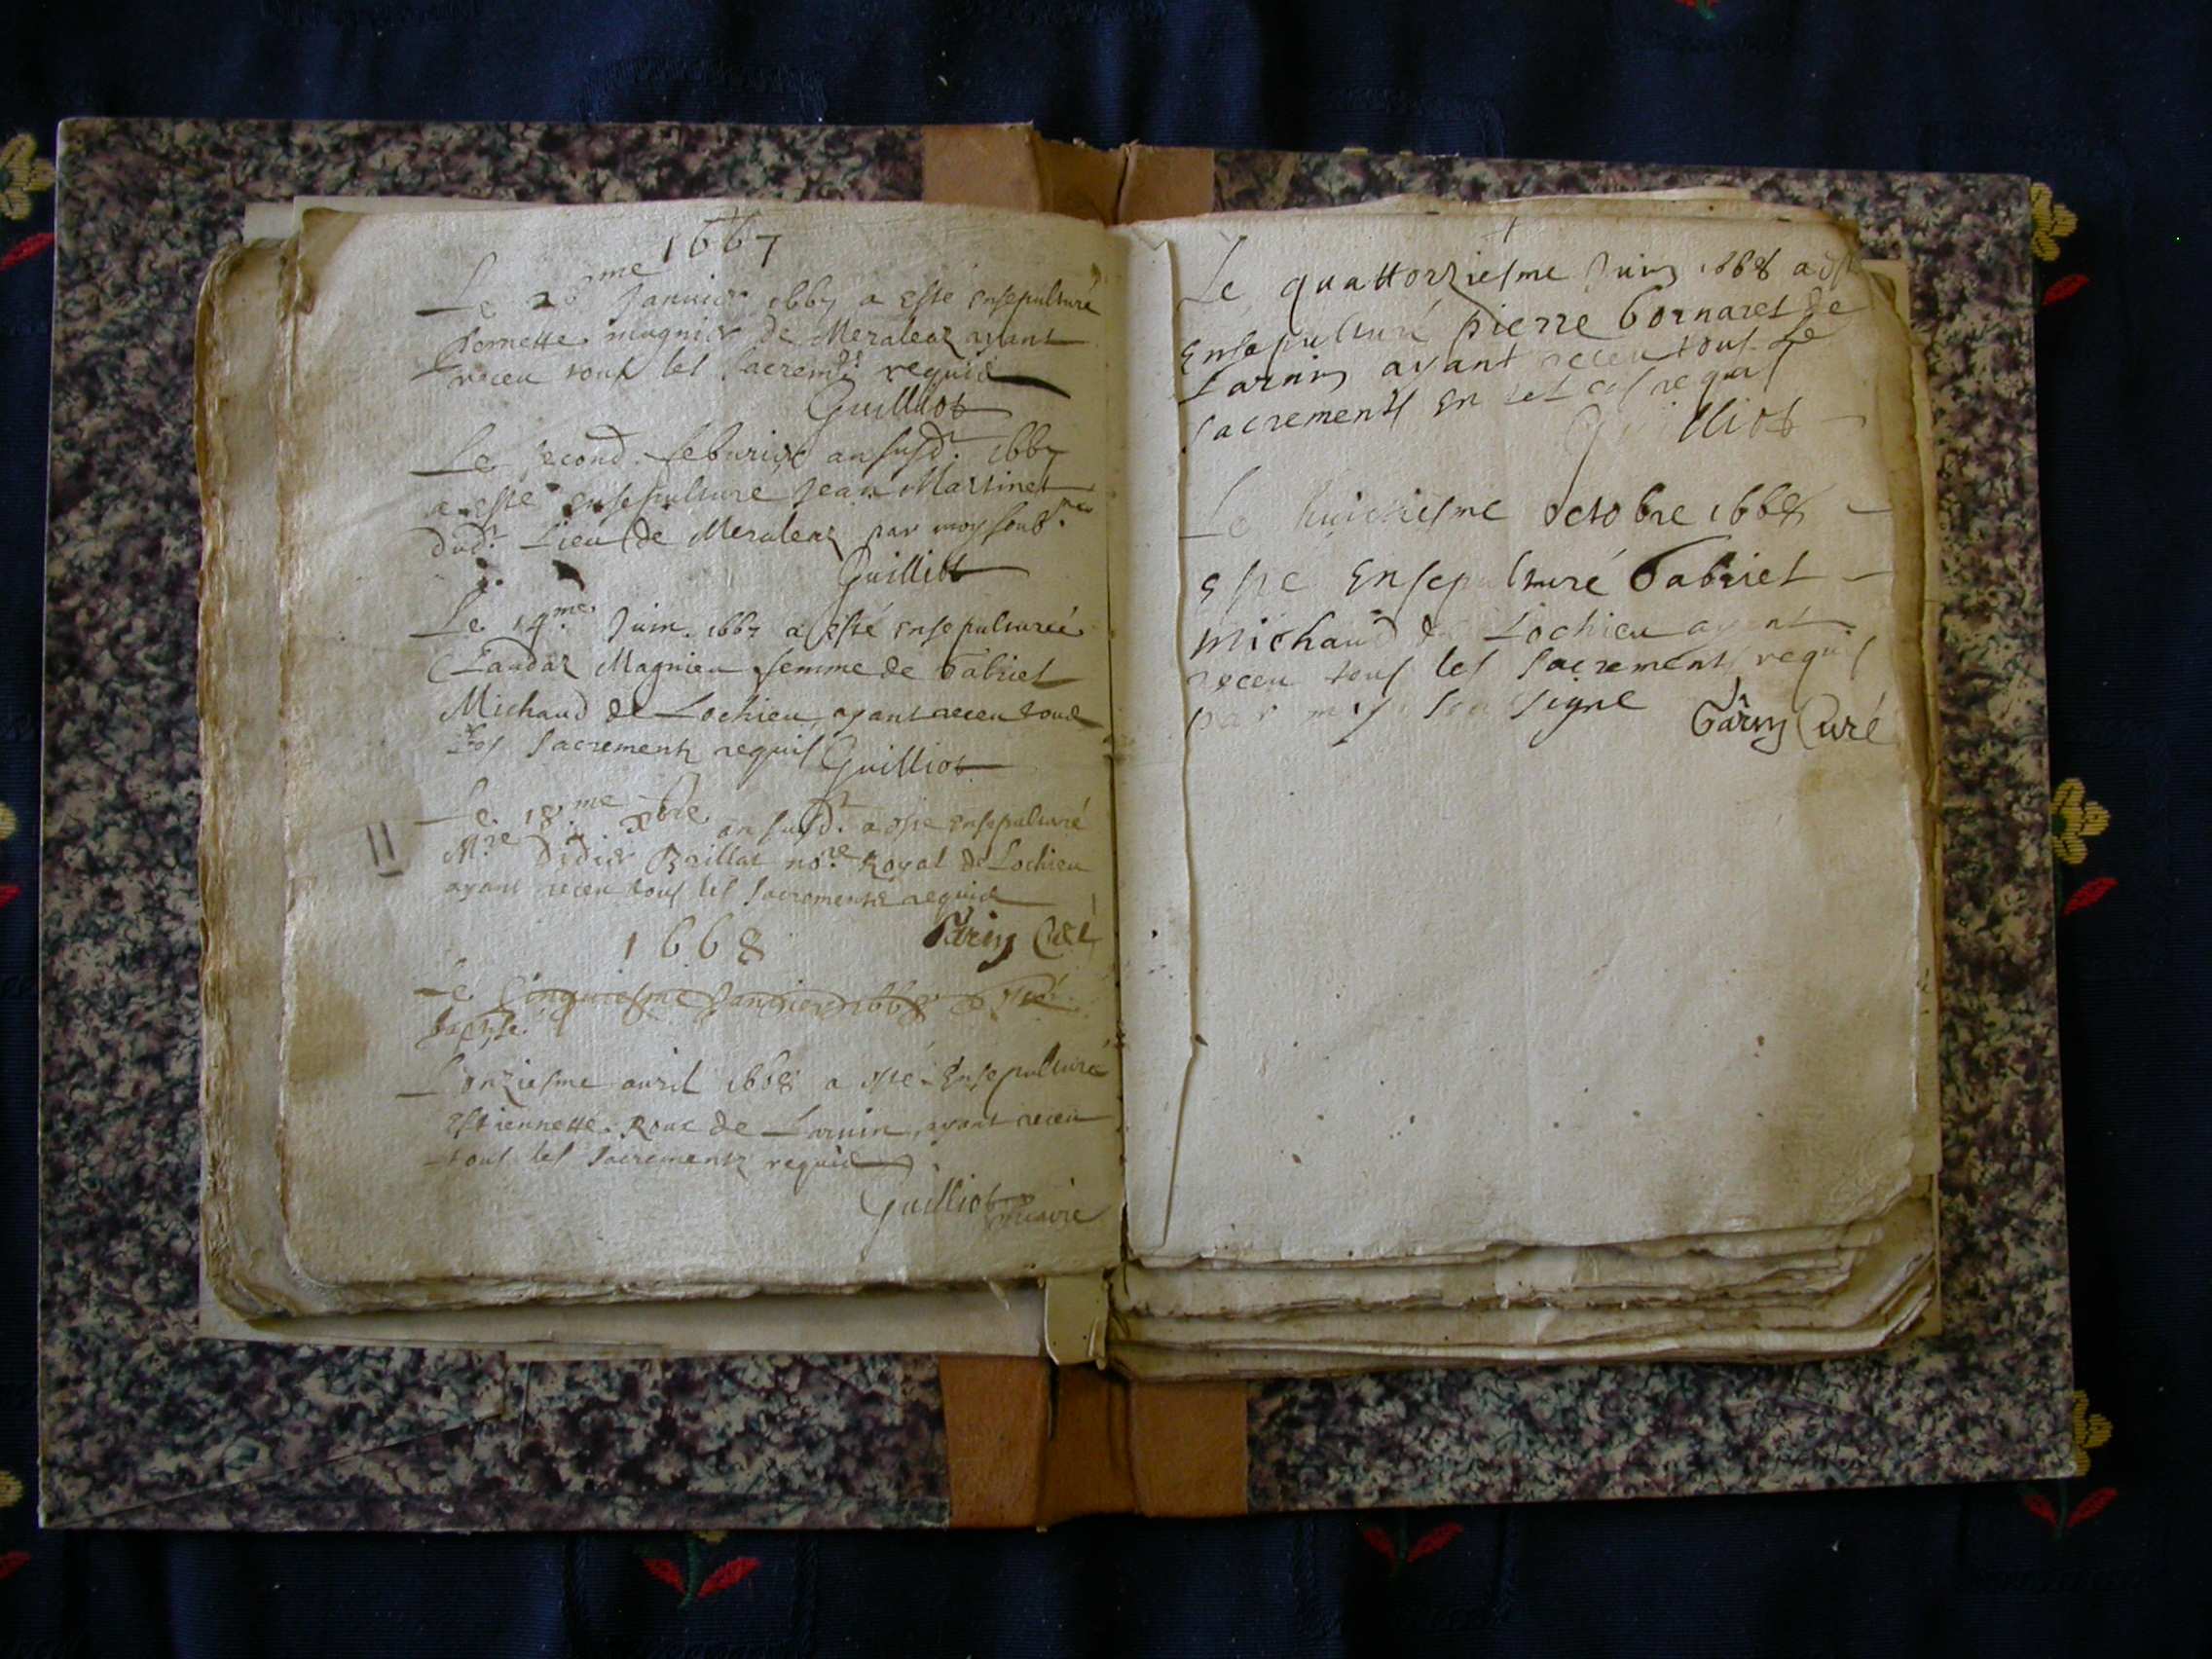 1667
Le 28me Janvier 1667 a esté ensepulturé
Pernette magnin de Meraleaz ayant
receu tous les sacremts requis
Guilliot
Le second febvrier an susd. 1667
a esté ensepulturé Jean Martinet
dud. Lieu de Meraleaz par moy soubsné
Guilliot
Le 14me Juin 1667 a esté ensepulturée
Claudaz Magnieu femme de Gabriel
Michaud de Lochieu ayant receu tous
les sacrements requis Guilliot
Le 18me xbre an susd. a esté ensepulturé
Mre Didier Brillat nore Royal de Lochieu
ayant receu tous les sacrements requis
Garin Curé
1668
Le Cinquiesme Janvier 1668 a esté
baptisé
Lonziesme avril 1668 a esté Ensepulturé
Estiennette Roux de Larnin ayant receu
tous les sacrements requis
Guilliot vicaire
Le quattorziesme Juin 1668 a est
Ensepulturé pierre Bornaret de
Larnin ayant receu tous Le
sacrements En tel cas requis
Guilliot
Le huictiesme octobre 1668
esté Ensepulturé Gabriel
Michaud de Lochieu ayant
receu tous les sacrements requis
par moy soussigné Garin Curé